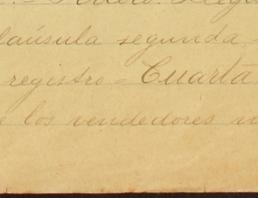 cláusula segunda -
registro - Cuarta
los vendedores